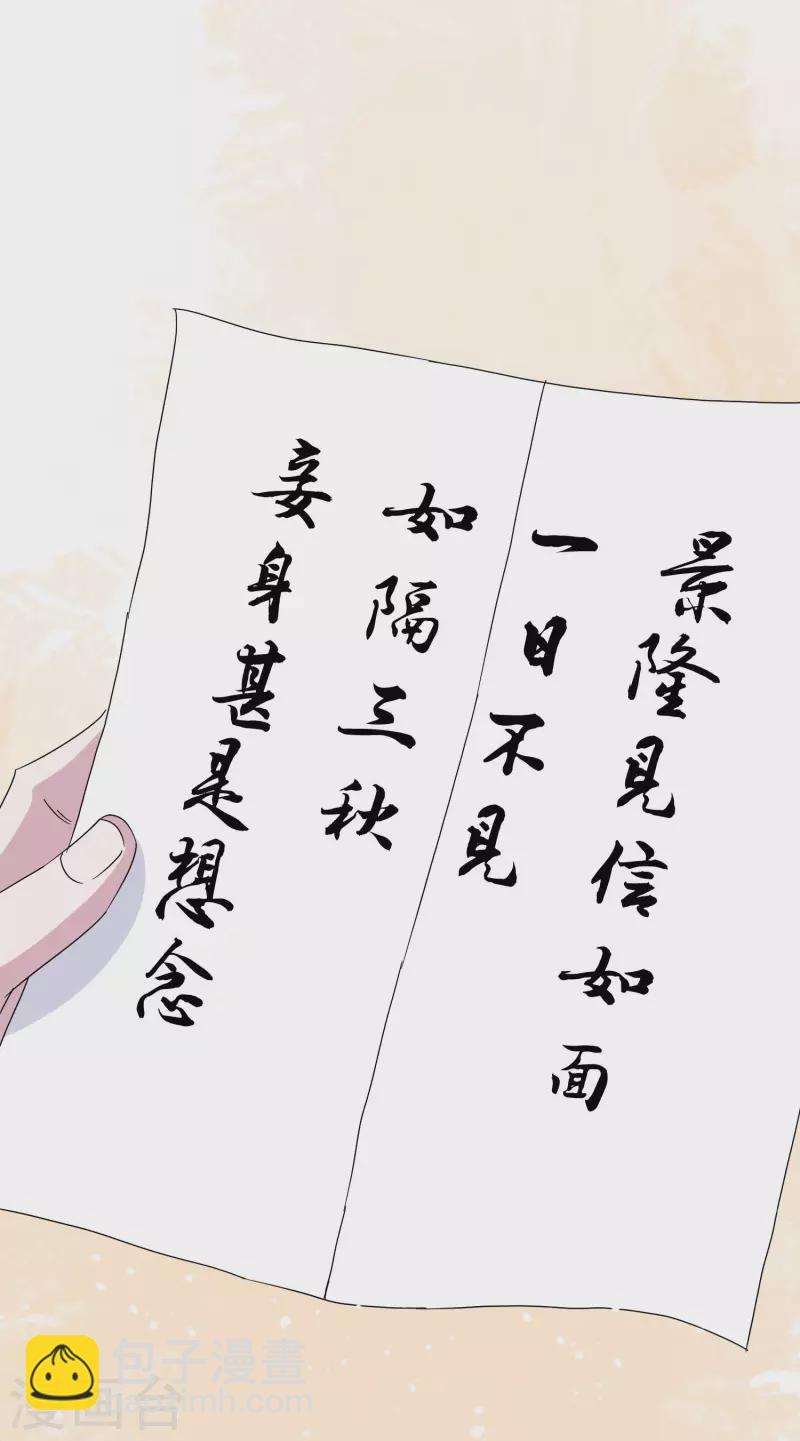 景隆見信如面
一日不見
如隔三秋
妾身甚是想念
包子漫畫
baozimh.com
漫画台